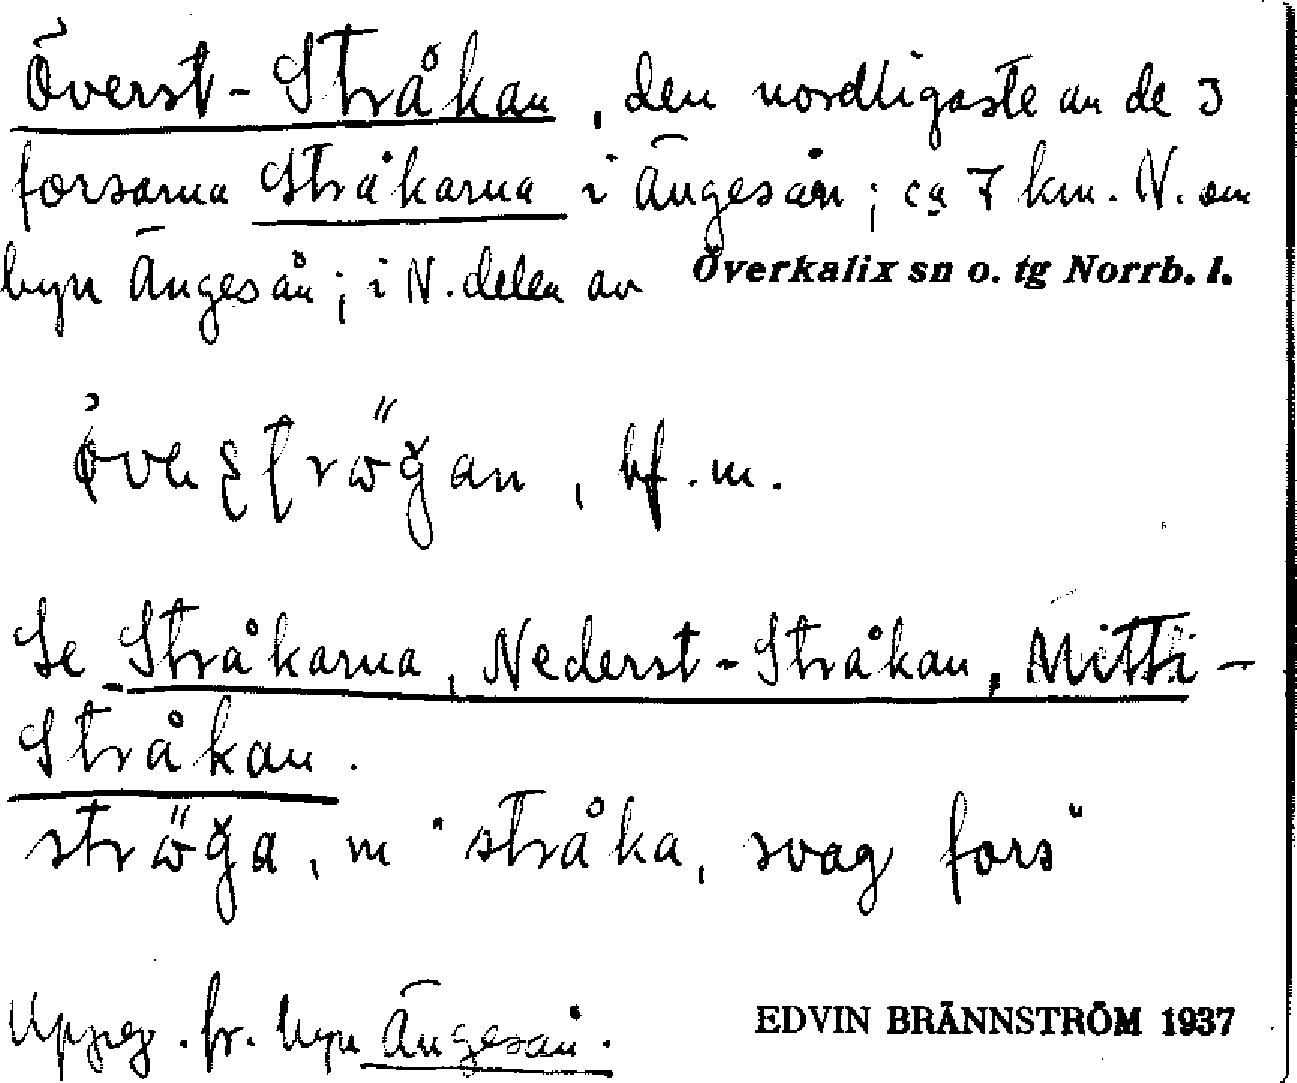 Överst-Stråkan, den nordligaste av de 3
forsarna Stråkarna i Ängesån; ca 7 km. N. om
byn Ängesån; i N. delen av Överkalix sn o. tg Norrb. l.
bf. m.
Se Stråkarna, Nederst-Stråkan, Mitti-
Stråkan.
m "stråka, svag fors"
Uppg. fr. byn Ängesån. EDVIN BRÄNNSTRÖM 1937